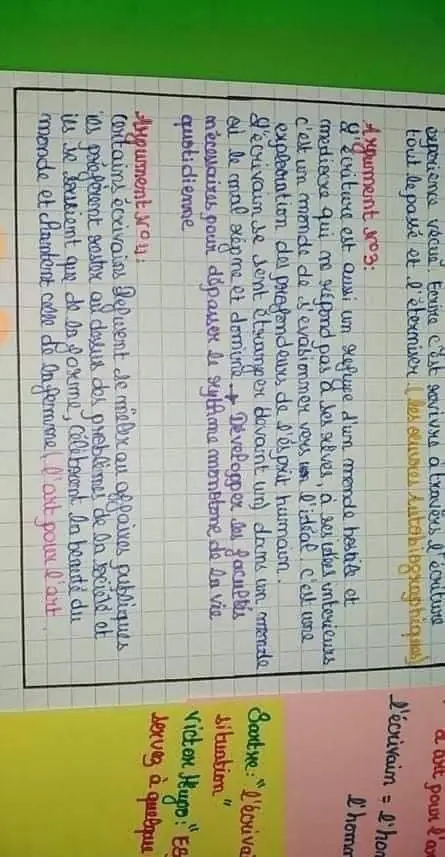 expérience vécue. Ecrire c'est survivre à travers l'écriture
tout le passé et l'éterniser. (les œuvres Autobibographiques)
Argument N°3:
L'écriture est aussi un refuge d'un monde hostile et
mediocre qui ne répond pas à ses rêves, à ses idées interieurs
c'est un monde de s'evasionner vers l'idéal c'est une
exploration des profondeurs de l'ésprit humain.
(L'écrivain se sent étranger devant un) dans un monde
où le mal règne et domine → Développer les facultés
nécessaires pour dépasser le rythme monotone de la vie
quotidienne
Argument N°4:
Certains écrivains refusent se mêler au affaires publiques
ils préfèrent rester au dessus des problèmes de la société et
ils se soucient que de la forme, célèbrent la beauté du
monde et chantent celle de la femme (l'art pour l'art.
a art pour l'a
l'écrivain = l'ho
l'homm
Sartre: "l'écriva
situation"
Victor Hugo: "Es
servez à quelque